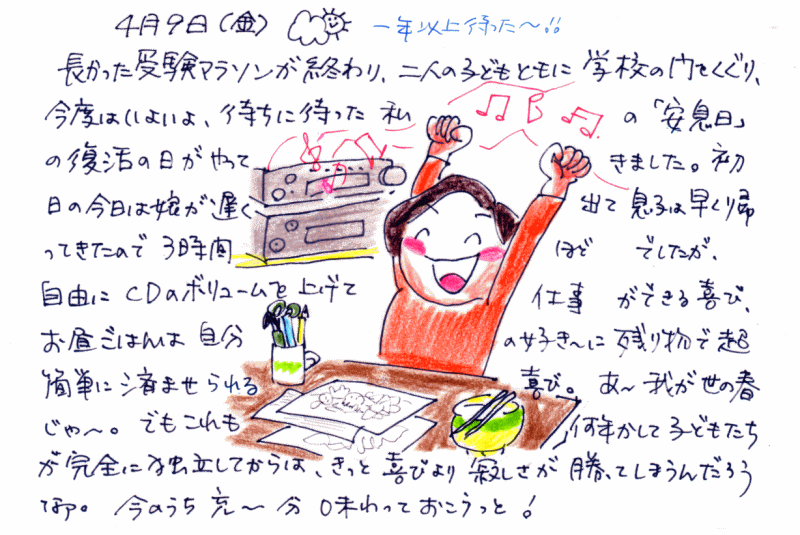 4月9日(金) 一年以上待った〜!!
長かった受験マラソンが終わり、二人の子どもともに学校の門をくぐり、
今度はいよいよ、待ちに待った私の「安息日」
の復活の日がやってきました。初
日の今日は娘が遅く出て息子は早くり帰
ってきたので3時間ほどでしたが、
自由にCDのボリュームを上げて仕事ができる喜び、
お昼ごはんは自分の好き〜に残り物で超
簡単に済ませられる喜び。あ〜我が世の春
じゃ〜。でもこれも何年かして子どもたち
が完全に独立してからは、きっと喜びより寂しさが勝ってしまうんだろう
なァ。今のうち充〜分味わっておこうっと!